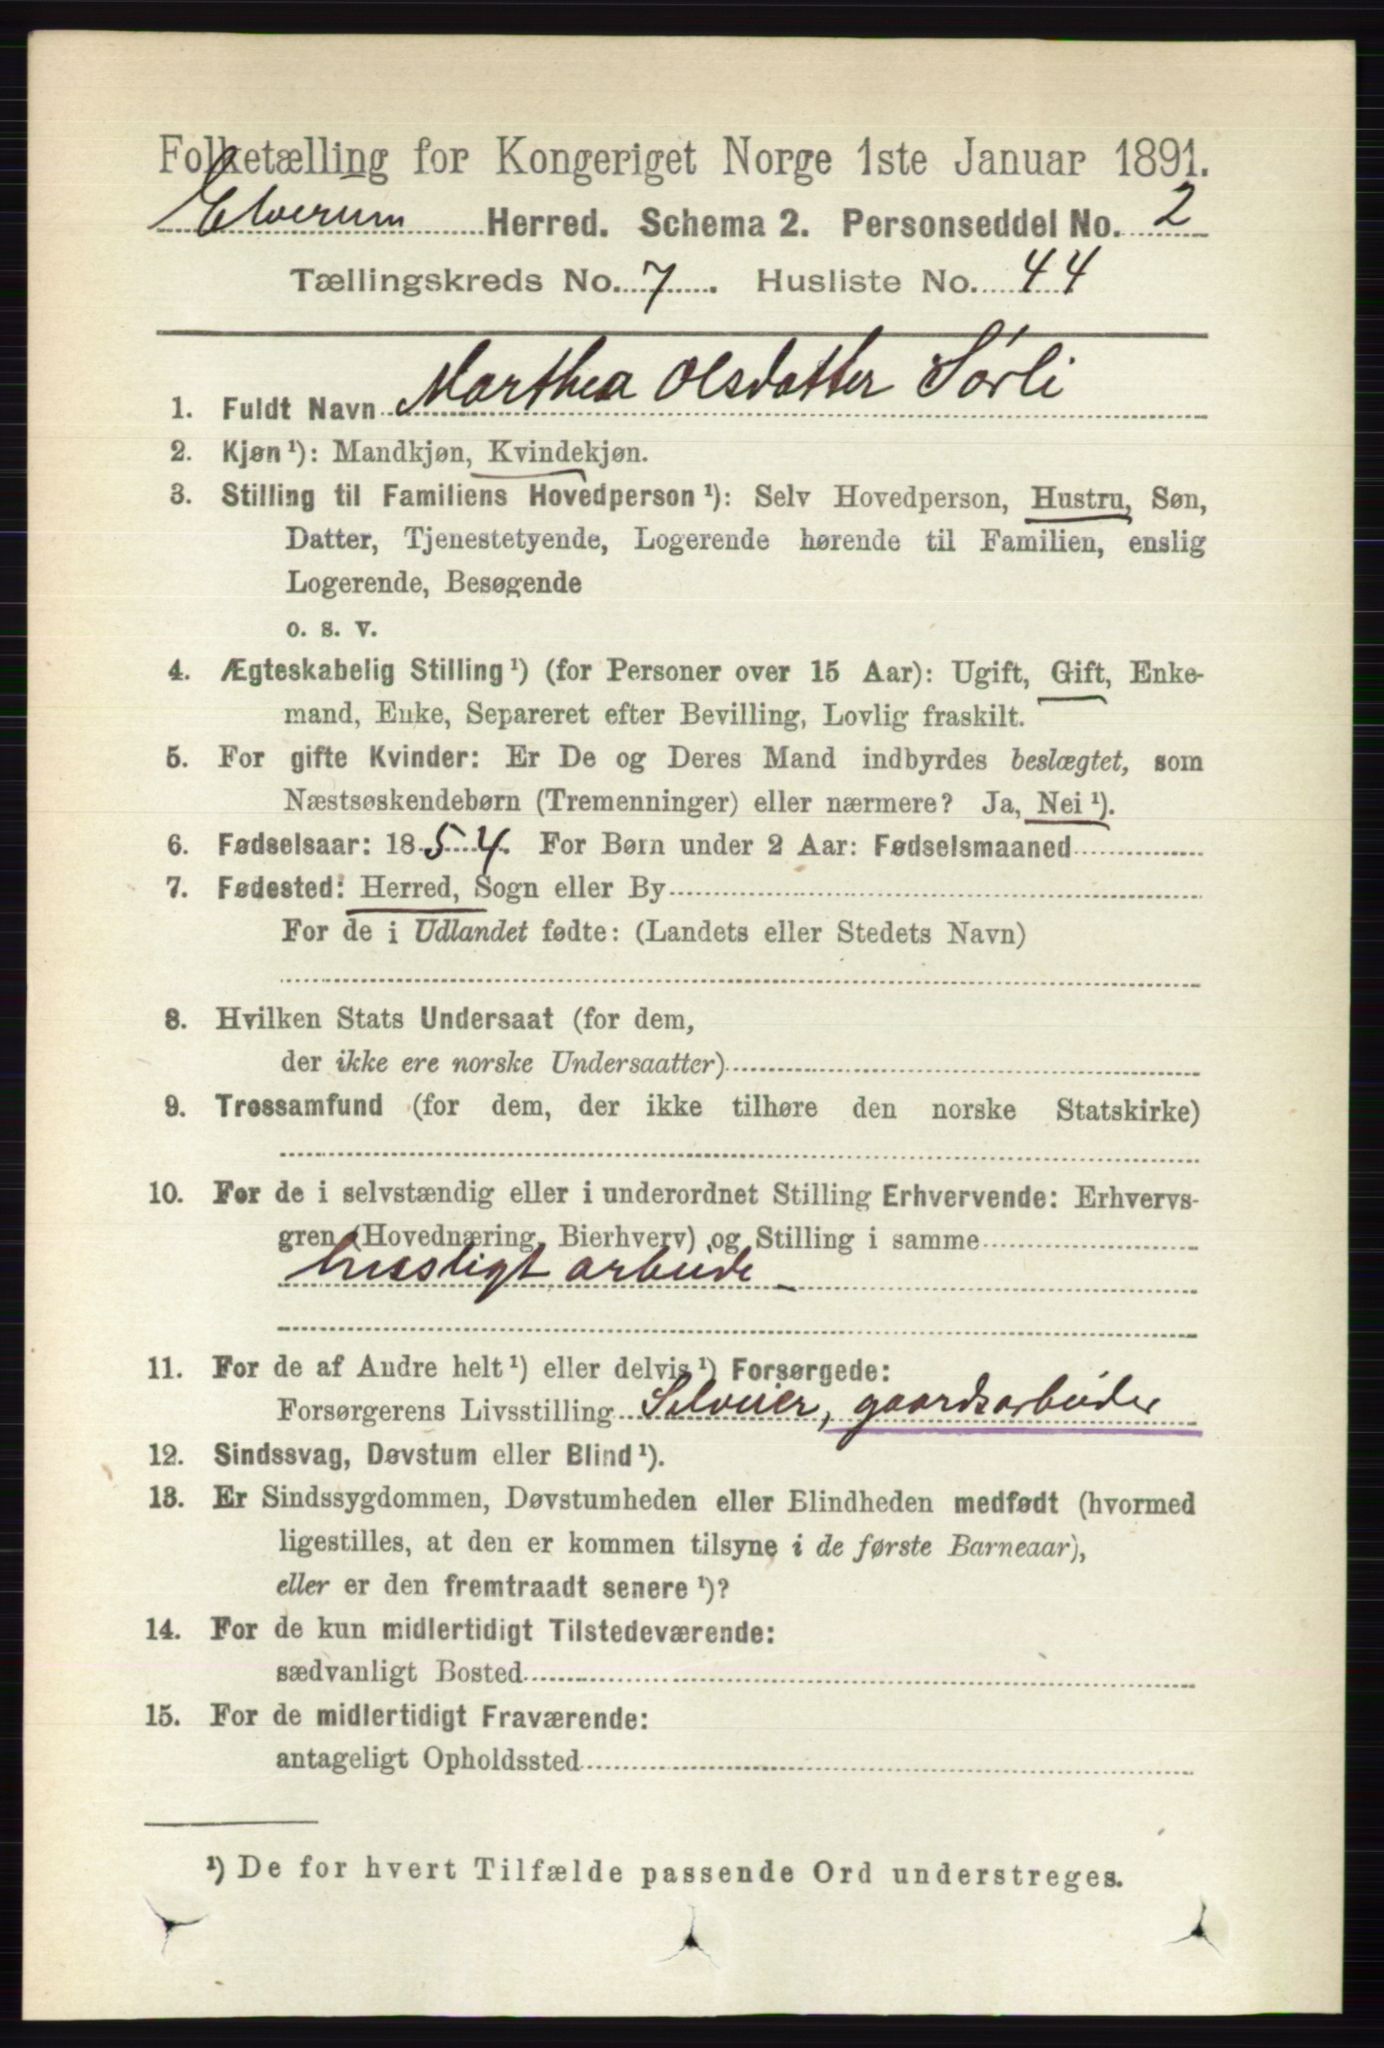 Folketælling for Kongeriget Norge 1ste Januar 1891.
Elverum Herred. Schema 2. Personseddel No. 2
Tællingskreds No. 7. Husliste No. 44
1. Fuldt Navn Marthea Olsdatter Sørli
2. Kjøn ¹): Mandkjøn, Kvindekjøn.
3. Stilling til Familiens Hovedperson ¹): Selv Hovedperson, Hustru, Søn,
Datter, Tjenestetyende, Logerende hørende til Familien, enslig
Logerende, Besøgende
o. s. v.
4. Ægteskabelig Stilling ¹) (for Personer over 15 Aar): Ugift, Gift, Enke-
mand, Enke, Separeret efter Bevilling, Lovlig fraskilt.
5. For gifte Kvinder: Er De og Deres Mand indbyrdes beslægtet, som
Næstsøskendebørn (Tremenninger) eller nærmere? Ja, Nei ¹).
6. Fødselsaar: 1854. For Børn under 2 Aar: Fødselsmaaned
7. Fødested: Herred, Sogn eller By
For de i Udlandet fødte: (Landets eller Stedets Navn)
8. Hvilken Stats Undersaat (for dem,
der ikke ere norske Undersaatter)
9. Trossamfund (for dem, der ikke tilhøre den norske Statskirke)
10. For de i selvstændig eller i underordnet Stilling Erhvervende: Erhvervs-
gren (Hovednæring, Bierhverv) og Stilling i samme
husligt arbeide
11. For de af Andre helt ¹) eller delvis ¹) Forsørgede:
Forsørgerens Livsstilling Selveier, gaardsarbeider
12. Sindssvag, Døvstum eller Blind ¹).
13. Er Sindssygdommen, Døvstumheden eller Blindheden medfødt (hvormed
ligestilles, at den er kommen tilsyne i de første Barneaar),
eller er den fremtraadt senere ¹)?
14. For de kun midlertidigt Tilstedeværende:
sædvanligt Bosted
15. For de midlertidigt Fraværende:
antageligt Opholdssted
¹) De for hvert Tilfælde passende Ord understreges.